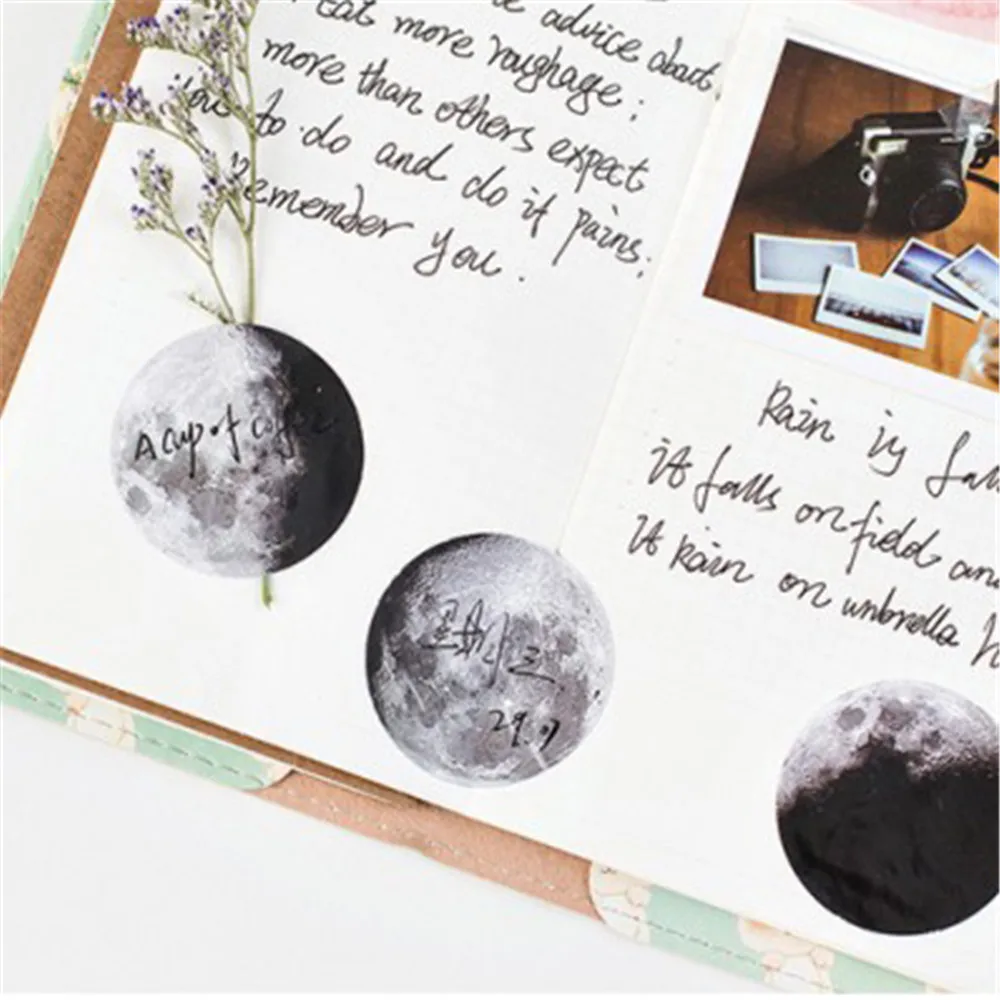 advice about
Eat more roughage;
more than others expect
you to do and do it pains;
Remember you.
A cup of coffee
星期三
29.
Rain is fall
it falls on field and
it rain on unbrella h